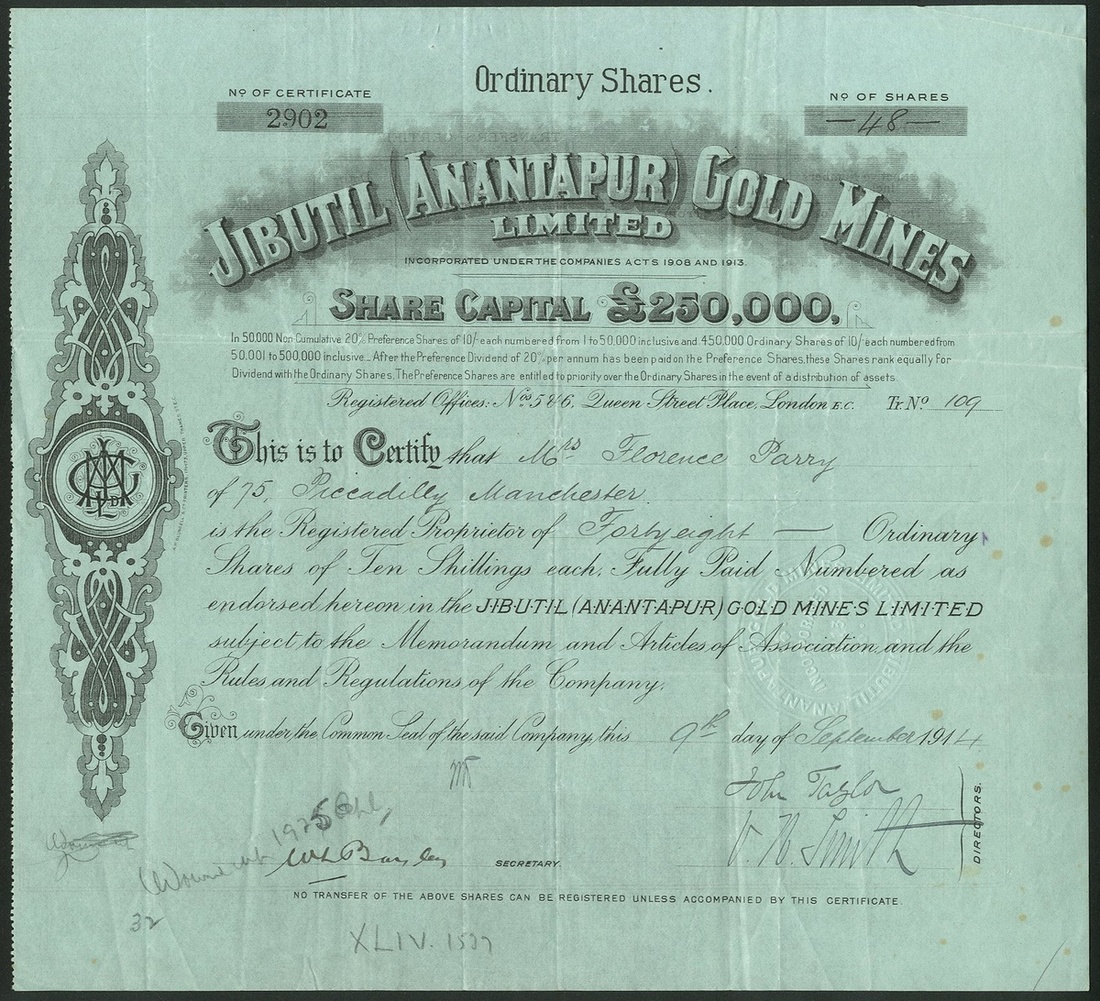 Ordinary Shares.
No OF CERTIFICATE
2902
No OF SHARES
—48—
JIBUTIL (ANANTAPUR) GOLD MINES
LIMITED
INCORPORATED UNDER THE COMPANIES ACTS 1908 AND 1913.
SHARE CAPITAL £250,000,
In 50,000 Non Cumulative 20% Preference Shares of 10/- each numbered from 1 to 50,000 inclusive and 450,000 Ordinary Shares of 10/- each numbered from
50,001 to 500,000 inclusive. After the Preference Dividend of 20% per annum has been paid on the Preference Shares, these Shares rank equally for
Dividend with the Ordinary Shares. The Preference Shares are entitled to priority over the Ordinary Shares in the event of a distribution of assets.
Registered Offices: Nos 5 & 6, Queen Street Place, London E.C. Tr. No 109
This is to Certify that Mrs Florence Parry
of 75, Piccadilly Manchester.
is the Registered Proprietor of Forty eight — Ordinary
Shares of Ten Shillings each, Fully Paid Numbered as
endorsed hereon in the JIBUTIL (ANANTAPUR) GOLD MINES LIMITED
subject to the Memorandum and Articles of Association and the
Rules and Regulations of the Company.
Given under the Common Seal of the said Company, this 9th day of September 1914
John Taylor
V. N. Smith
DIRECTORS.
SECRETARY.
NO TRANSFER OF THE ABOVE SHARES CAN BE REGISTERED UNLESS ACCOMPANIED BY THIS CERTIFICATE.
32
XLIV. 1537